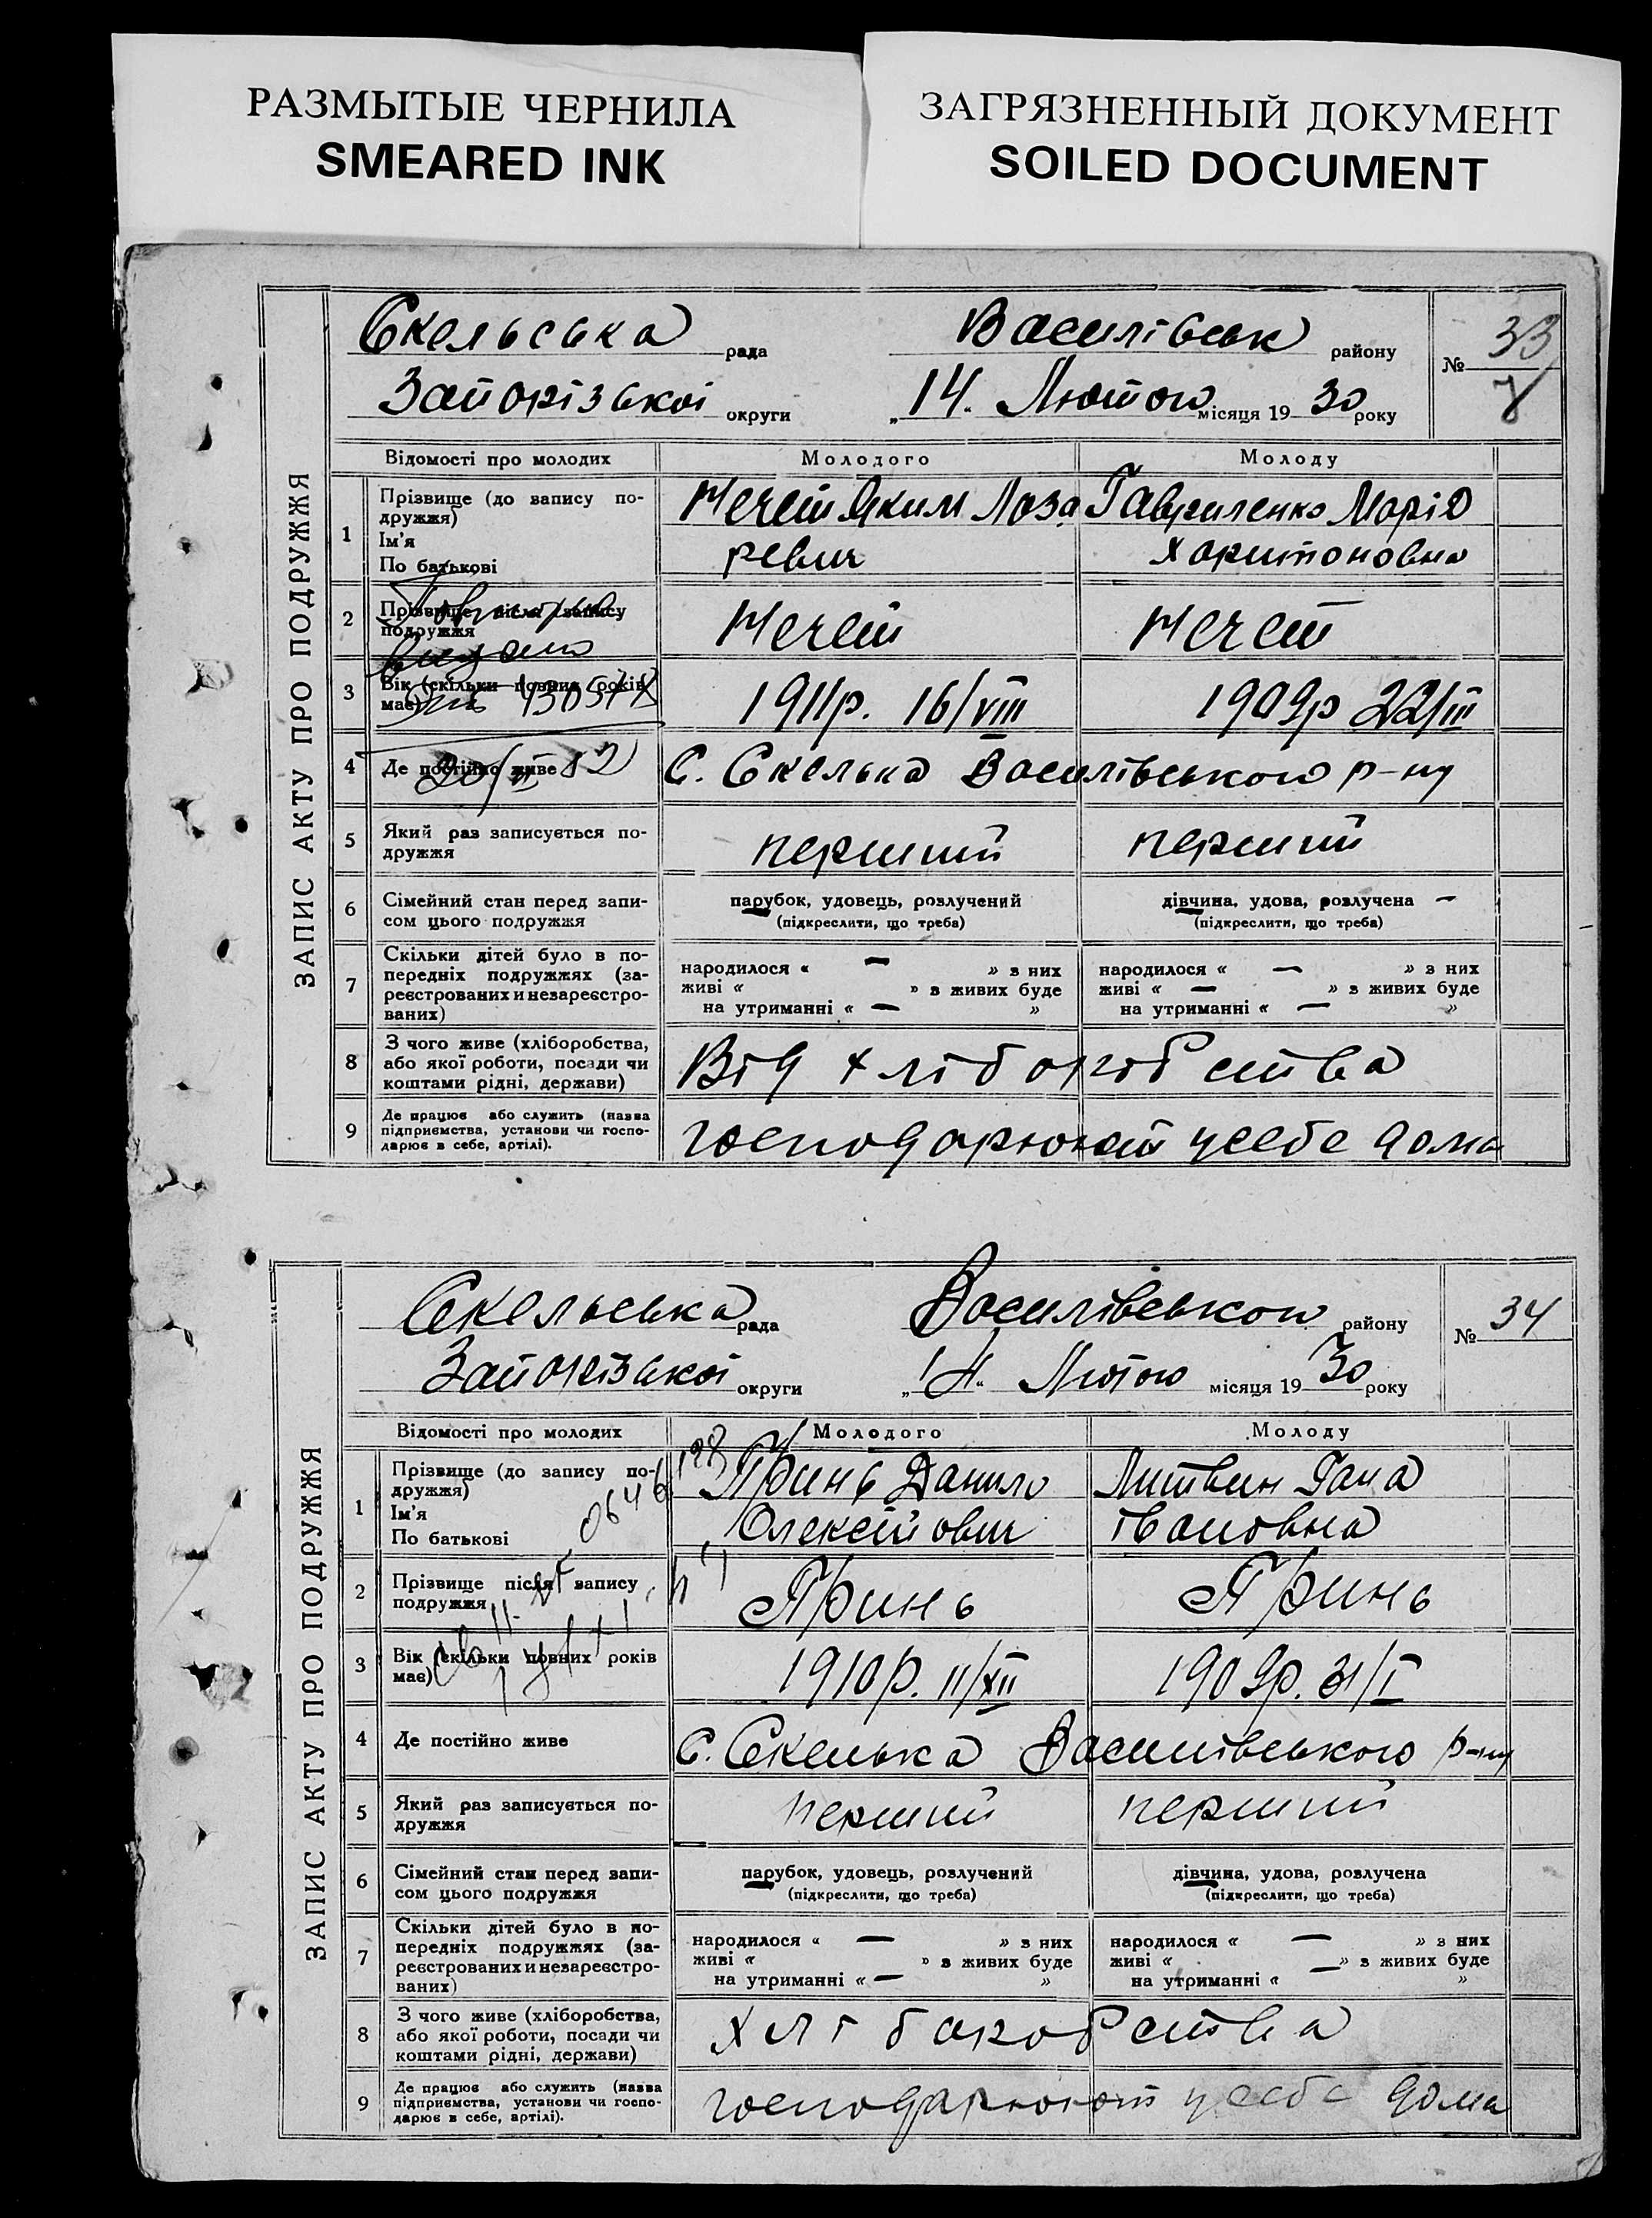 РАЗМЫТЫЕ ЧЕРНИЛА
SMEARED INK
ЗАГРЯЗНЕННЫЙ ДОКУМЕНТ
SOILED DOCUMENT
ЗАПИС АКТУ ПРО ПОДРУЖЖЯ
Скельська рада Василівськ району № 33
Запорізької округи „14“ Лютого місяця 1930 року
Відомості про молодих Молодого Молоду
1 Прізвище (до запису по-
дружжя)
Ім'я
По батькові
Мечет Яким Лаза
ревич
Гавриленко Марія
Харитоновна
2 Прізвище після запису
подружжя
Мечет Мечет
3 Вік (скільки повних років
має)
1911р. 16/VIII 1909р 22/III
4 Де постійно живе С. Скелька Василівського р-ну
5 Який раз записується по-
дружжя
перший перший
6 Сімейний стан перед запи-
сом цього подружжя
парубок, удовець, розлучений
(підкреслити, що треба)
дівчина, удова, розлучена —
(підкреслити, що треба)
7 Скільки дітей було в по-
передніх подружжях (за-
реєстрованих и незареєстро-
ваних)
народилося « — » з них
живі « » з живих буде
на утриманні « — »
народилося « — » з них
живі « — » з живих буде
на утриманні « — »
8 З чого живе (хліборобства,
або якої роботи, посади чи
коштами рідні, держави)
Від хліборобства
9 Де працює або служить (назва
підприємства, установи чи госпо-
дарює в себе, артілі).
господарюют усебе дома
ЗАПИС АКТУ ПРО ПОДРУЖЖЯ
Скельська рада Василівського району № 34
Запорізької округи „14“ Лютого місяця 1930 року
Відомості про молодих Молодого Молоду
1 Прізвище (до запису по-
дружжя)
Ім'я
По батькові
Данило
Олексійович
Литвин Гана
Івановна
2 Прізвище після запису
подружжя
3 Вік (скільки повних років
має)
1910р. 11/XII 1909р. 31/I
4 Де постійно живе С. Скелька Василівського р-ну
5 Який раз записується по-
дружжя
перший перший
6 Сімейний стан перед запи-
сом цього подружжя
парубок, удовець, розлучений
(підкреслити, що треба)
дівчина, удова, розлучена
(підкреслити, що треба)
7 Скільки дітей було в по-
передніх подружжях (за-
реєстрованих и незареєстро-
ваних)
народилося « — » з них
живі « » з живих буде
на утриманні « — »
народилося « — » з них
живі « — » з живих буде
на утриманні « »
8 З чого живе (хліборобства,
або якої роботи, посади чи
коштами рідні, держави)
хліборобства
9 Де працює або служить (назва
підприємства, установи чи госпо-
дарює в себе, артілі).
господарюют усебе дома